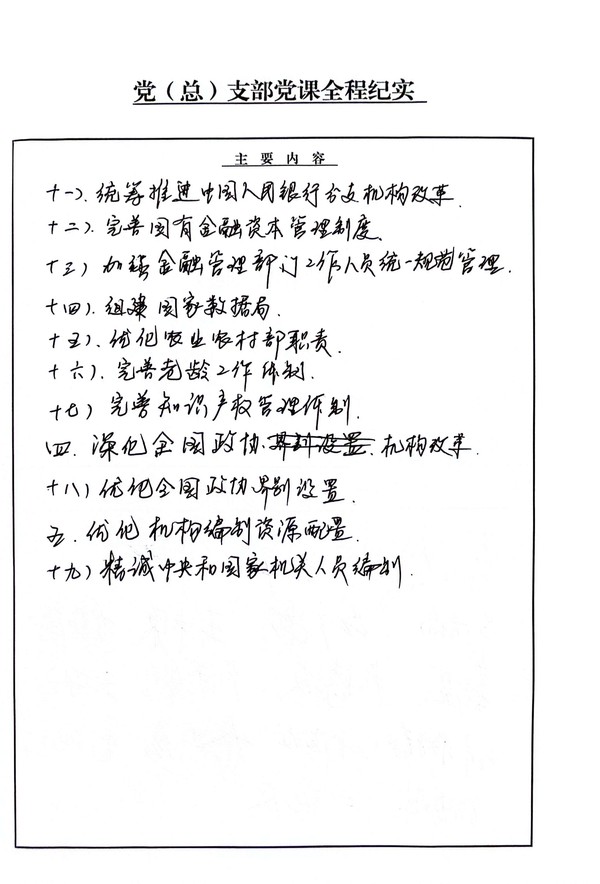 党（总）支部党课全程纪实
主要内容
十一）.统筹推进中国人民银行分支机构改革.
十二）.完善国有金融资本管理制度.
十三）加强金融管理部门工作人员统一规范管理.
十四）.组建国家数据局.
十五）.优化农业农村部职责.
十六）.完善老龄工作体制.
十七）完善知识产权管理体制.
四.深化全国政协界别设置.机构改革.
十八）优化全国政协界别设置.
五.优化机构编制资源配置.
十九）精诚中央和国家机关人员编制.